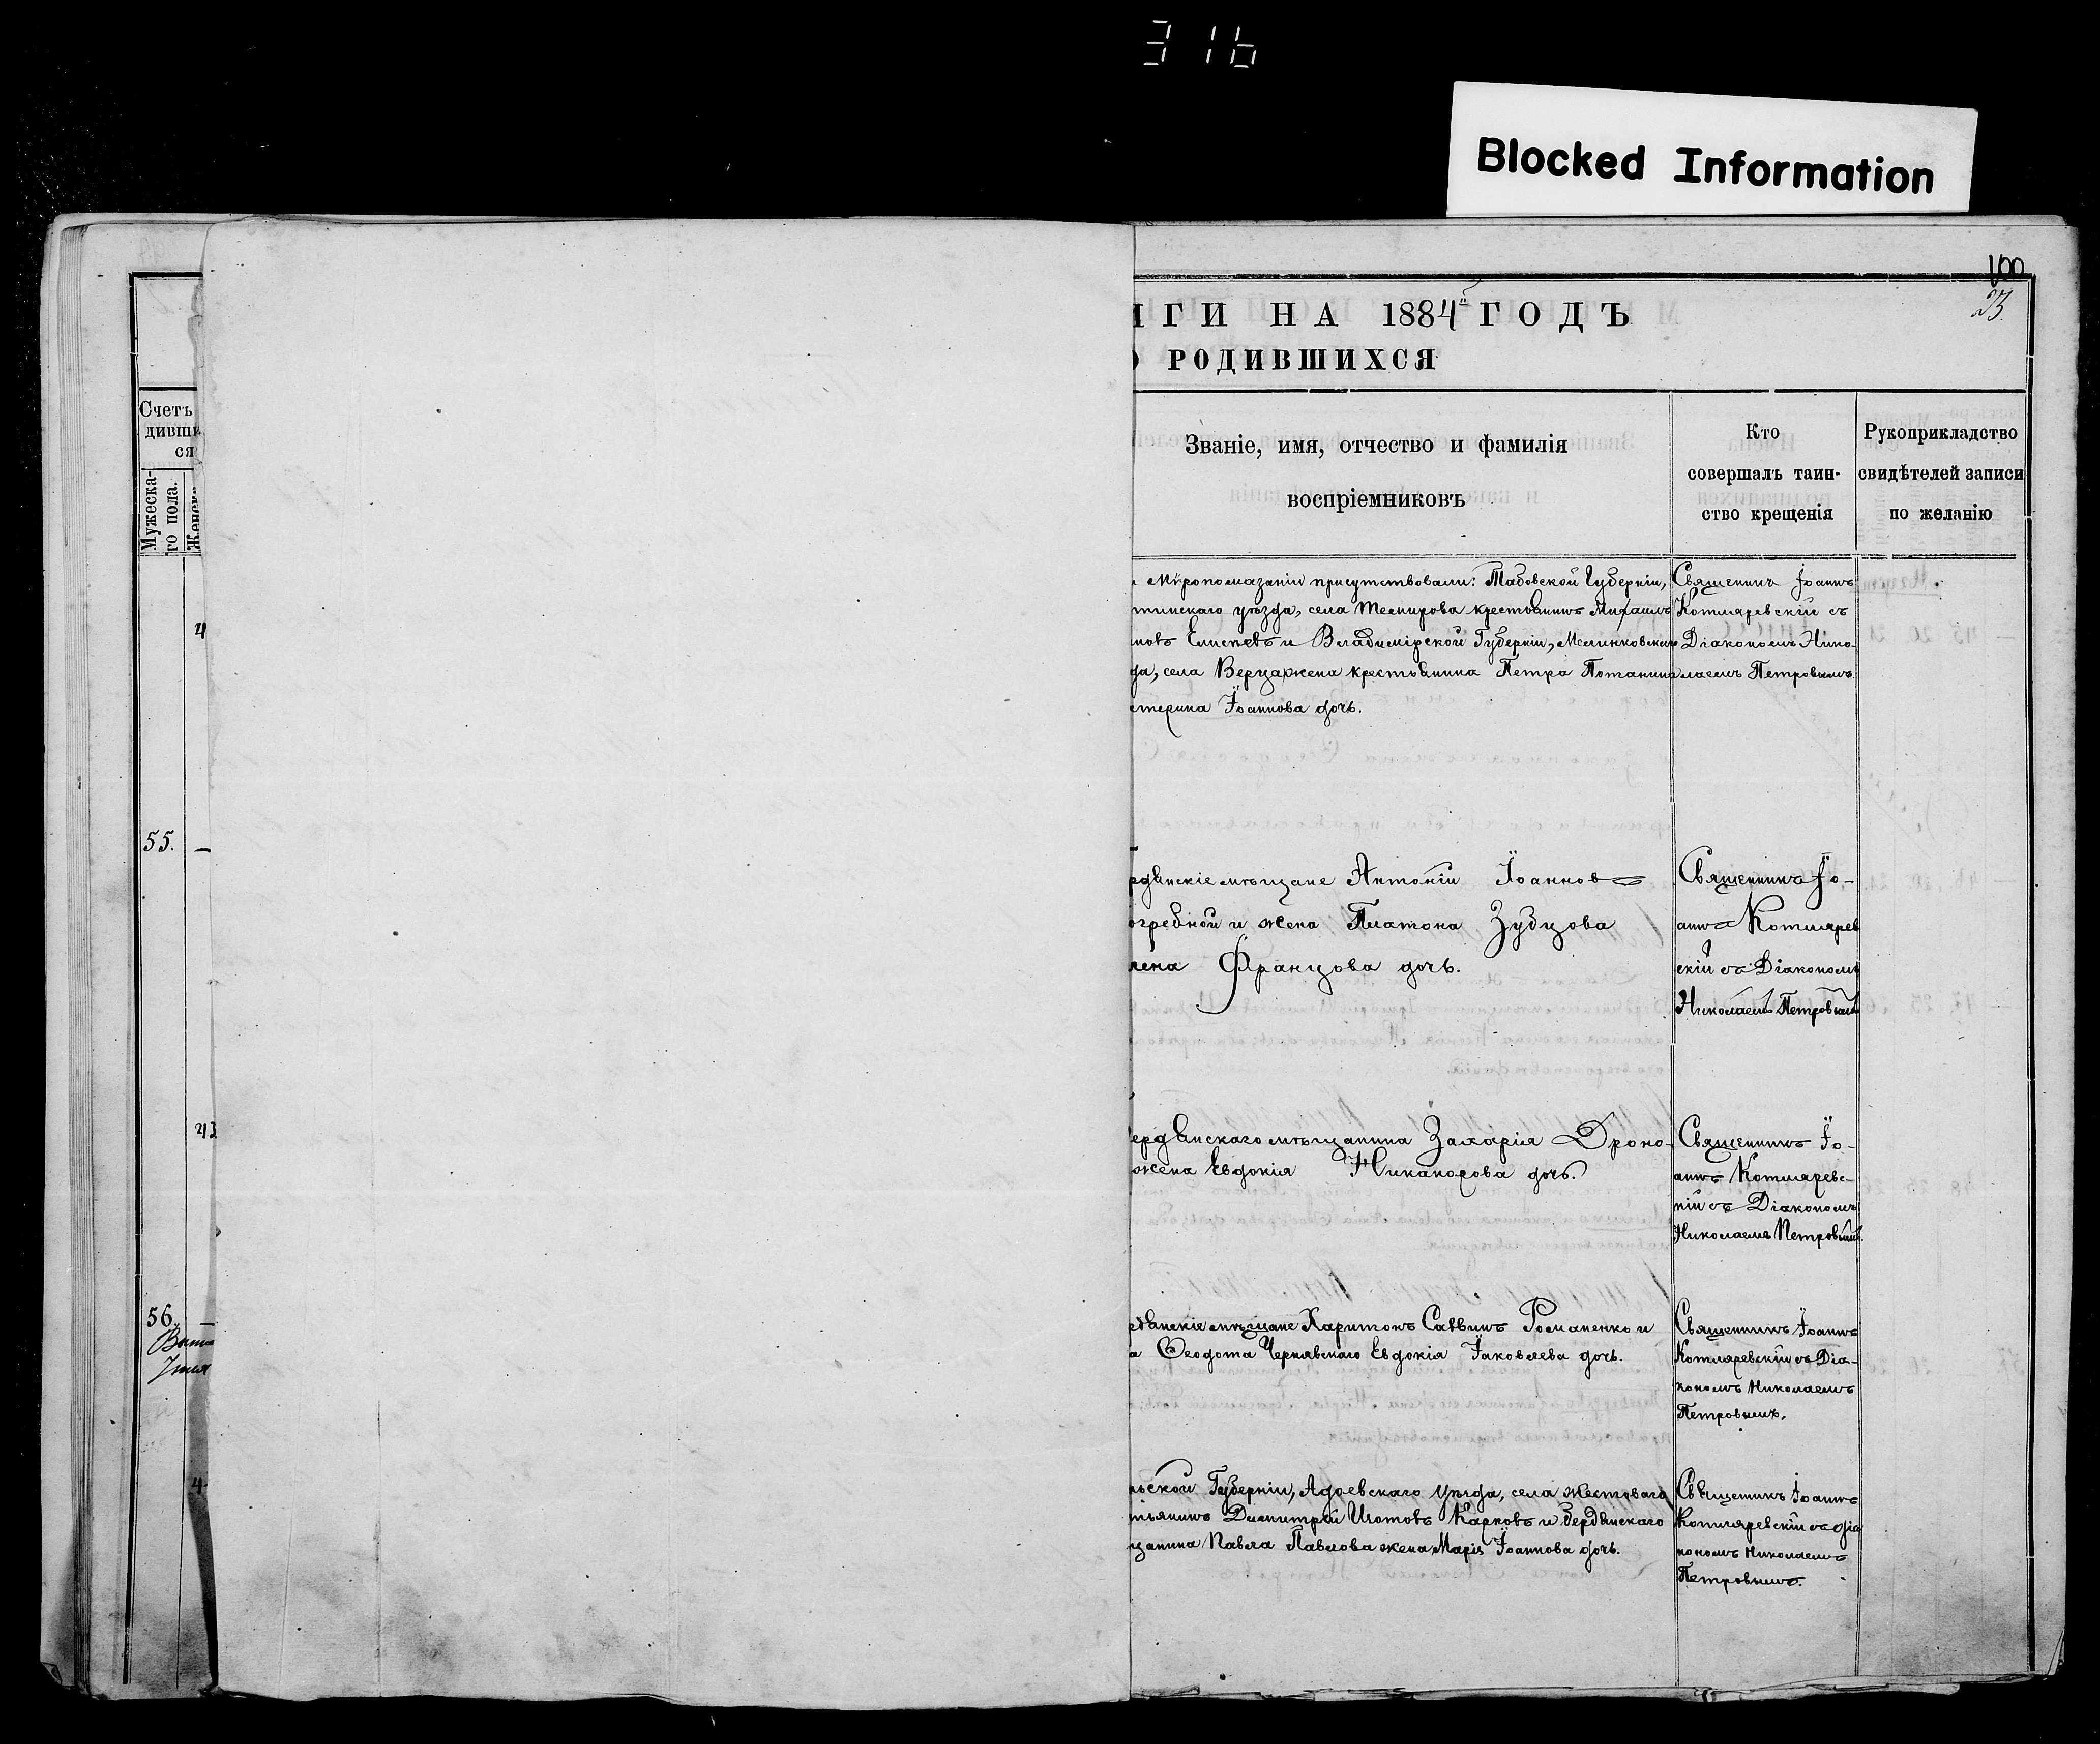 316
Blocked Information
100
23.
ГИ НА 1884й ГОДЪ
РОДИВШИХСЯ
Счетъ
дивши
ся
Мужеска-
го пола.
Женск
Званіе, имя, отчество и фамилія
воспріемниковъ
Кто
совершалъ таин-
ство крещенія
Рукоприкладство
свидѣтелей записи
по желанію
Мѵропомазаніи присутствовали: Губерніи,
тинскаго уѣзда, села крестьянинъ Михаилъ
новъ и Владимірской Губерніи,
да, села крестьянина Петра Потанина
терина Іоаннова дочь.
Священникъ Іоаннъ
Котляревскій съ
Діакономъ Нико-
лаемъ Петровымъ.
55.
рдянскіе мѣщане Антоній Іоанновъ
огребной и жена Платона Зубцова
лена Францова дочь.
Священникъ Іо-
аннъ Котлярев
скій съ Діакономъ
Николаемъ Петровымъ
43
ердянскаго мѣщанина Захарія Дроно-
жена Евдокія Никанорова дочь.
Священникъ Іо-
аннъ Котляревс-
кій съ Діакономъ
Николаемъ Петровымъ.
56.
рдянскіе мѣщане Харитонъ Саввинъ Романенко и
а Ѳеодота Чернявскаго Евдокія Іаковлева дочь.
Священникъ Іоаннъ
Котляревскій съ Діа-
кономъ Николаемъ
Петровымъ.
4
ьской Губерніи, Адоевскаго уѣзда, села Жестоваго
тьянинъ Димитрій Карповъ и Бердянскаго
щанина Павла Павлова жена Марія Іоаннова дочь.
Священникъ Іоаннъ
Котляревскій съ діа
кономъ Николаемъ
Петровымъ.